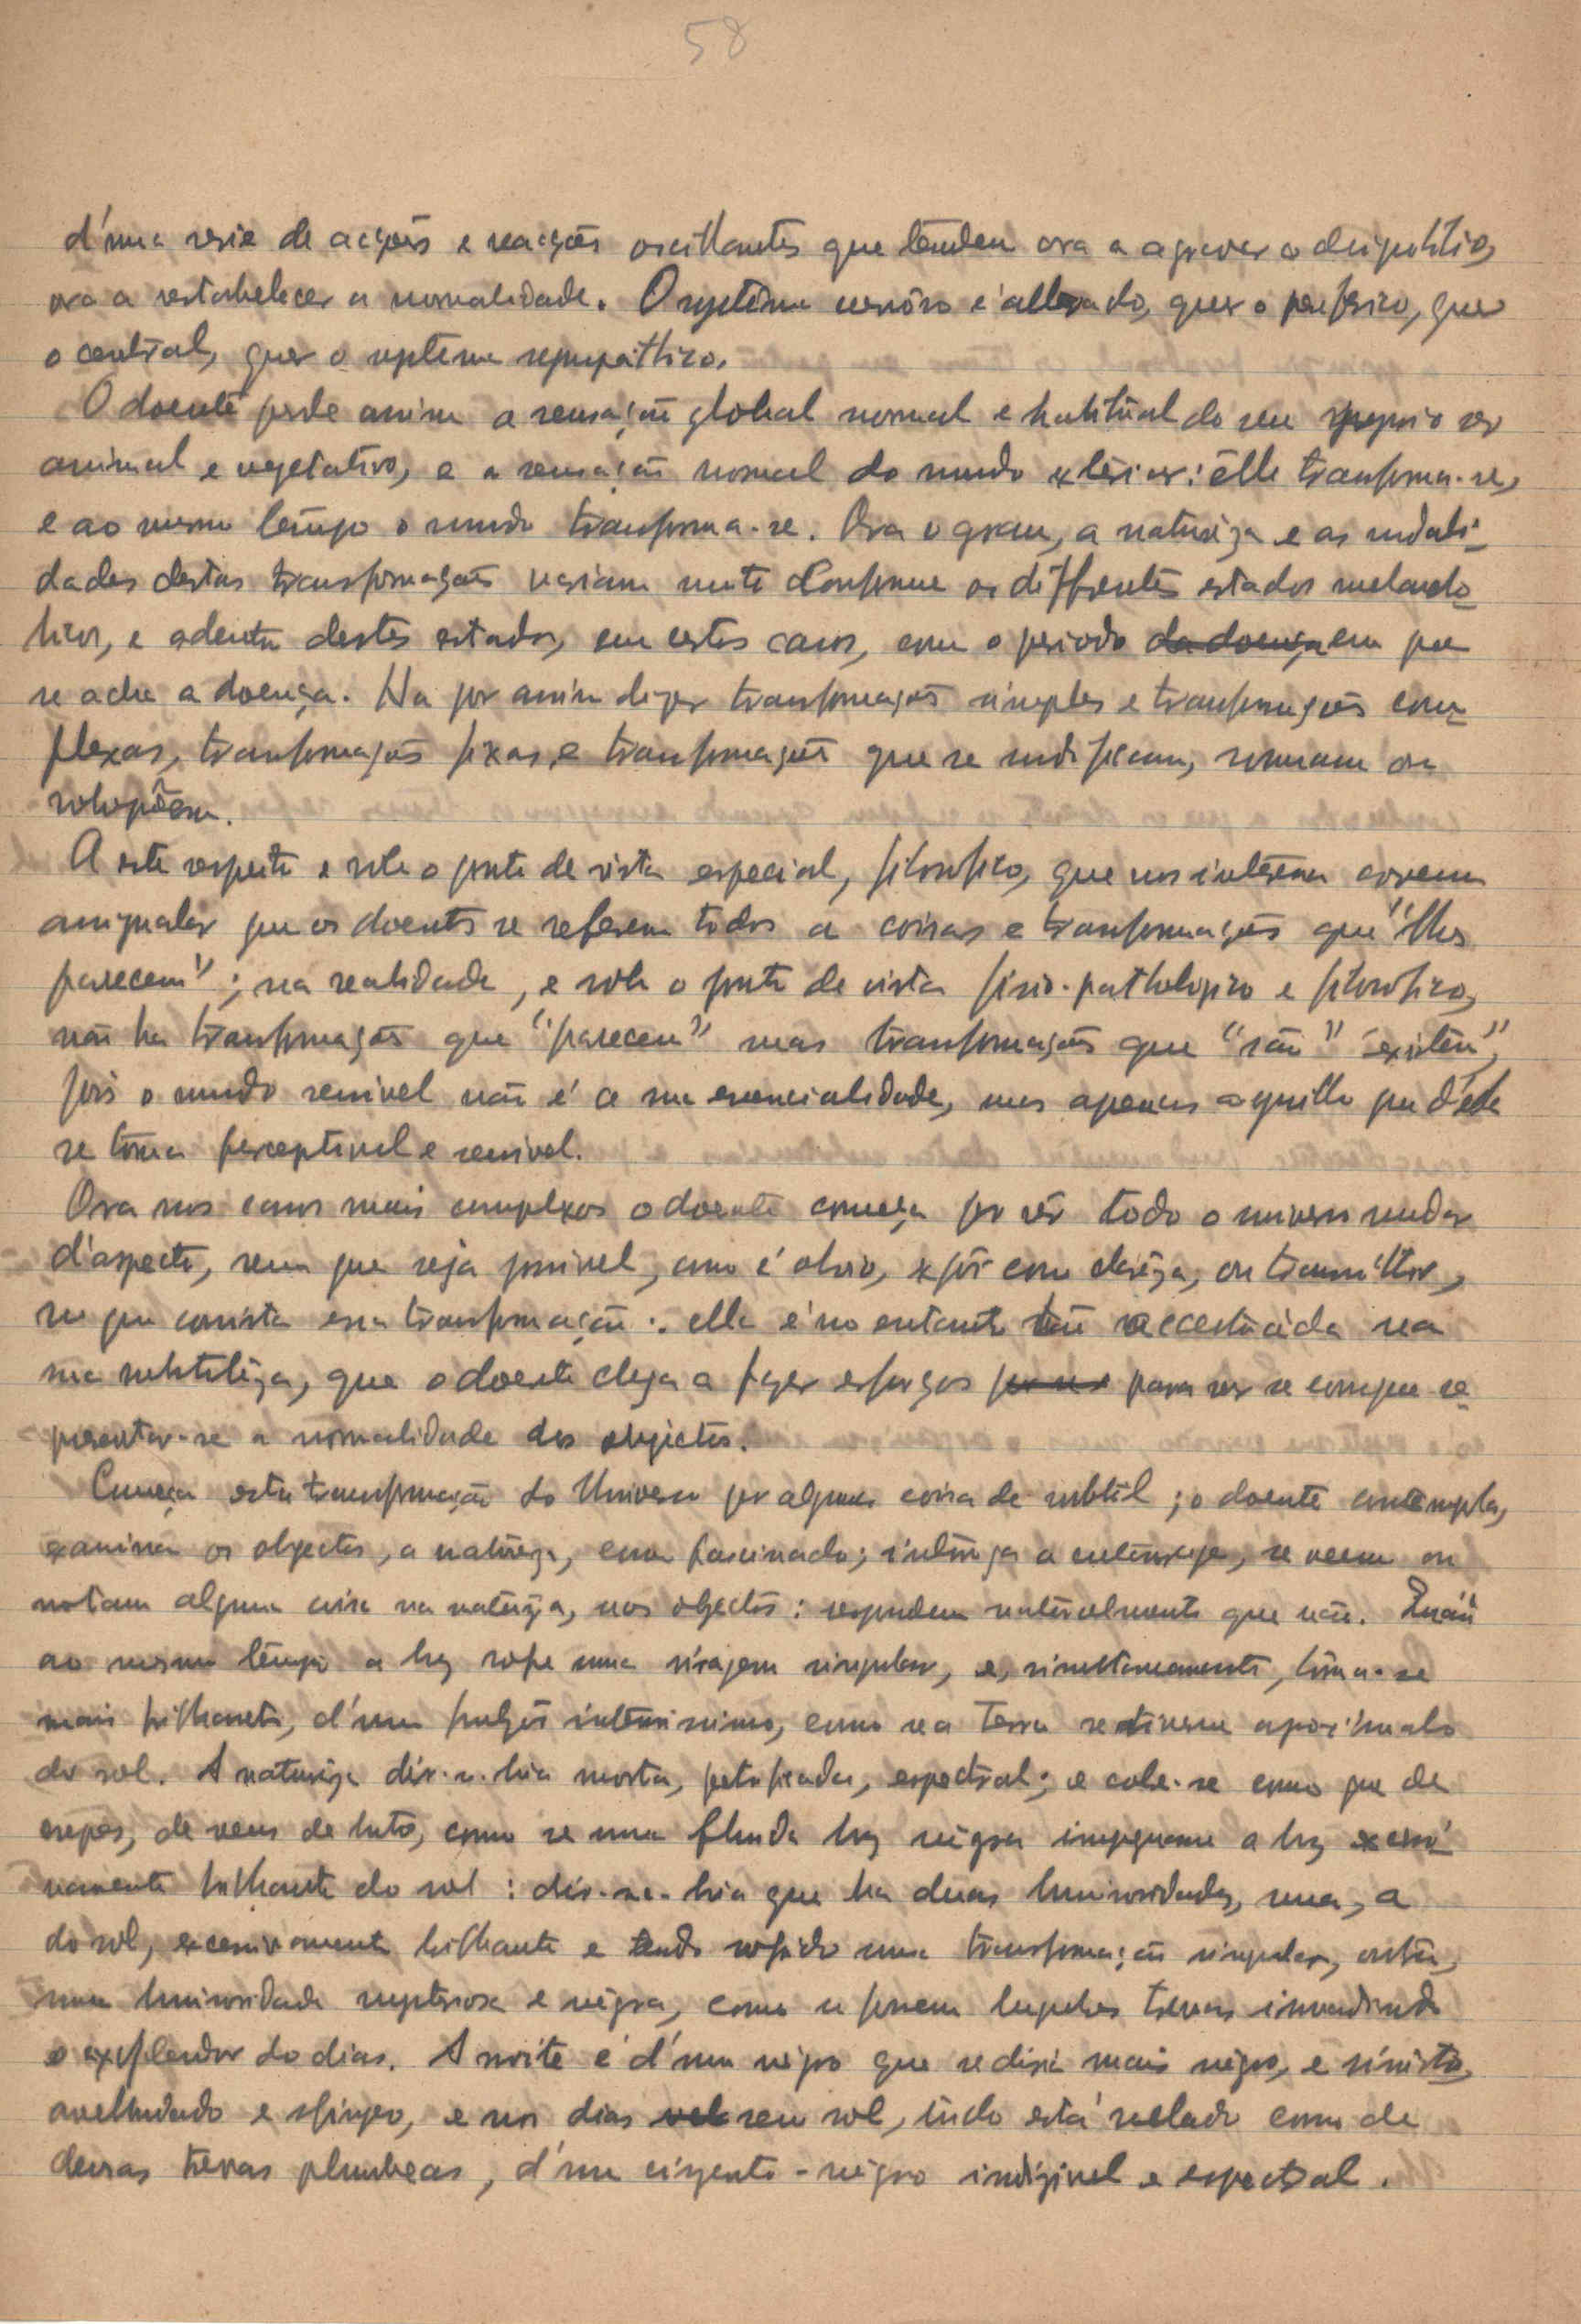 58
d'uma serie de acções e reacções oscillantes que tendem ora a agravar o desiquilibrio,
ora a restabelecer a normalidade. O systêma nervôso é alterado, quer o periferico, quer
o central, quer o systema sympathico.
O doente perde assim a sensação global normal e habitual do seu proprio ser
animal e vegetativo, e a sensação normal do mundo exterior: êlle transforma-se,
e ao mesmo tempo o mundo transforma-se. Ora o grau, a naturêza e as modali-
dades destas transformações variam muito conforme os differentes estados melancho-
licos, e adentro destes estados, em certos casos, com o periodo da doença em que
se acha a doença. Ha por assim dizer transformações simples e transformações com-
plexas, transformações fixas e transformações que se modificam, sommam ou
sobrepõem.
A este respeito e sob o ponto de vista especial, filosofico, que nos interessa convem
assignalar que os doentes se referem todos a coisas e transformações que "lhes
parecem"; na realidade, e sob o ponto de vista fisio-pathologico e filosofico,
não ha transformações que "parecem" mas transformações que "são" "existem",
pois o mundo sensivel não é a sua essencialidade, mas apenas aquillo que d'éle
se torna perceptivel e sensivel.
Ora nos casos mais complexos o doente começa por vêr todo o universo mudar
d'aspecto, sem que seja possivel, como é obvio, expôr com clarêza, ou transmittir,
no que consista essa transformação: ella é no entanto tão accentuada na
sua subtilêza, que o doente chega a fazer esforços para ver se consegue re-
presentar-se a normalidade dos objectos.
Começa esta transformação do Universo por alguma coisa de subtil; o doente contempla,
examina os objectos, a naturêza, como fascinado; interroga a se veem ou
notam alguma coisa na naturêza, nos objectos: respondem naturalmente que não.
ao mesmo tempo a luz sofre uma viragem singular, e, simultaneamente, torna-se
mais brilhante, d'um fulgôr intensissimo, como se a Terra se tivesse aproximado
do sol. A naturêza dir-se-hia morta, petrificada, espectral; e cobre-se como que de
crepes, de veus de luto, como se uma fluida luz negra impregnasse a luz excessi-
vamente brilhante do sol: dir-se-hia que ha duas luminosidades, uma, a
do sol, excessivamente brilhante e tendo sofrido uma transformação singular, outra,
uma luminosidade mysteriosa e negra, como se fossem lugubres trevas invadindo
o explendor do dias. A noite é d'um negro que se diria mais negro, e sinistro,
avelludado e sfingeo, e nos dias sem sol, tudo está velado como de
densas trevas plumbeas, d'um cinzento-negro indizivel e espectral.